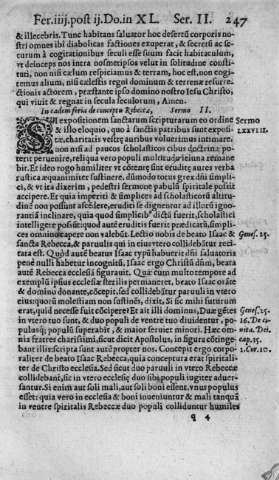 Fer.iiij.post ij.Do.in XL. Ser. II. 247
& illecebris. Tunc habitans saluator hoc desertũ corporis no-
stri omnes ibi diabolicas factiones exuperat, & securũ ac se-
curum à cogitationibus seculi esse suum facit habitaculum,
vt deinceps nos intra nosmetipsos velut in solitudine consti-
tuti, non nisi cælum respiciamus & terram, hoc est, non cogi-
temus aliud, nisi cælestis regni dominum & terrenæ resurre-
ctionis actorem, præstante ipso domino nostro Iesu Christo,
qui viuit & regnat in secula seculorum, Amen.
In eadem feria de conceptu Rebeccæ, Sermo II.
SI expositionem sanctarum scripturarum eo ordine
& illo eloquio, quo à sanctis patribus sunt exposi-
tæ, charitatis vestræ auribus voluerimus intimare,
non nisi ad paucos scholasticos cibus doctrinæ po-
terit peruenire, reliqua vero populi multitudo ieiuna remane-
bit. Et ideo rogo humiliter vt cõtentę sint eruditę aures verba
rustica æquanimiter sustinere, dũmodo totus grex dñi simpli-
ci, & vt ita dixerim, pedestri sermone pabulũ spiritale possit
accipere. Et quia imperiti & simplices ad scholasticorũ altitu-
dinẽ non possunt ascẽdere, eruditi se dignentur ad illorũ igno-
rantiã inclinare, quia quod simplicib⁹ dictũ fuerit, scholastici
intelligere possũt: quod autẽ eruditis fuerit prędicatũ, simpli-
ces omnino capere non valebũt. Lectio nobis de beato Isaac &
sancta Rebecca, & paruulis qui in eius vtero collidebãtur reci-
tata est. Quòd autẽ beatus Isaac typũ habuerit dñi saluatoris
penè nulli habetur incognitũ. Isaac ergo Christũ dñm, beata
autẽ Rebecca ecclesiã figurauit. Quæ cum multo tempore ad
exemplũ ipsius ecclesiæ sterilis permaneret, beato Isaac orãte
& domino donante, cõcepit, sed collidebãtur paruuli in vtero
eius: quorũ molestiam non sustinẽs, dixit, Si sic mihi futurum
erat, quid necesse fuit cõcipere? Et ait illi dominus, Duæ gẽtes
in vtero tuo sunt, & duo populi de ventre tuo diuidentur, po-
pulusq; populũ superabit, & maior seruiet minori. Hæc om-
nia fratres charissimi, sicut dicit Apostolus, in figura cõtinge-
bant illis: scripta sunt autẽ propter nos. Concepit ergo corpo-
raliter de beato Isaac Rebecca, quia conceptura erat spiritali-
ter de Christo ecclesia. Sed sicut duo paruuli in vtero Rebeccæ
collidebant, sic in vtero ecclesię duo sibi populi iugiter aduer-
santur. Si enim aut soli mali, aut soli boni essent, vnus populus
esset: quia vero in ecclesia & boni inueniuntur & mali tanquã
in ventre spiritalis Rebeccæ duo populi colliduntur humiles
q 4
Sermo
LXXVIII.
Genes. 25.
Genes. 25.
16. De ci-
vita. Dei.
cap. 35.
1. Cor. 10.